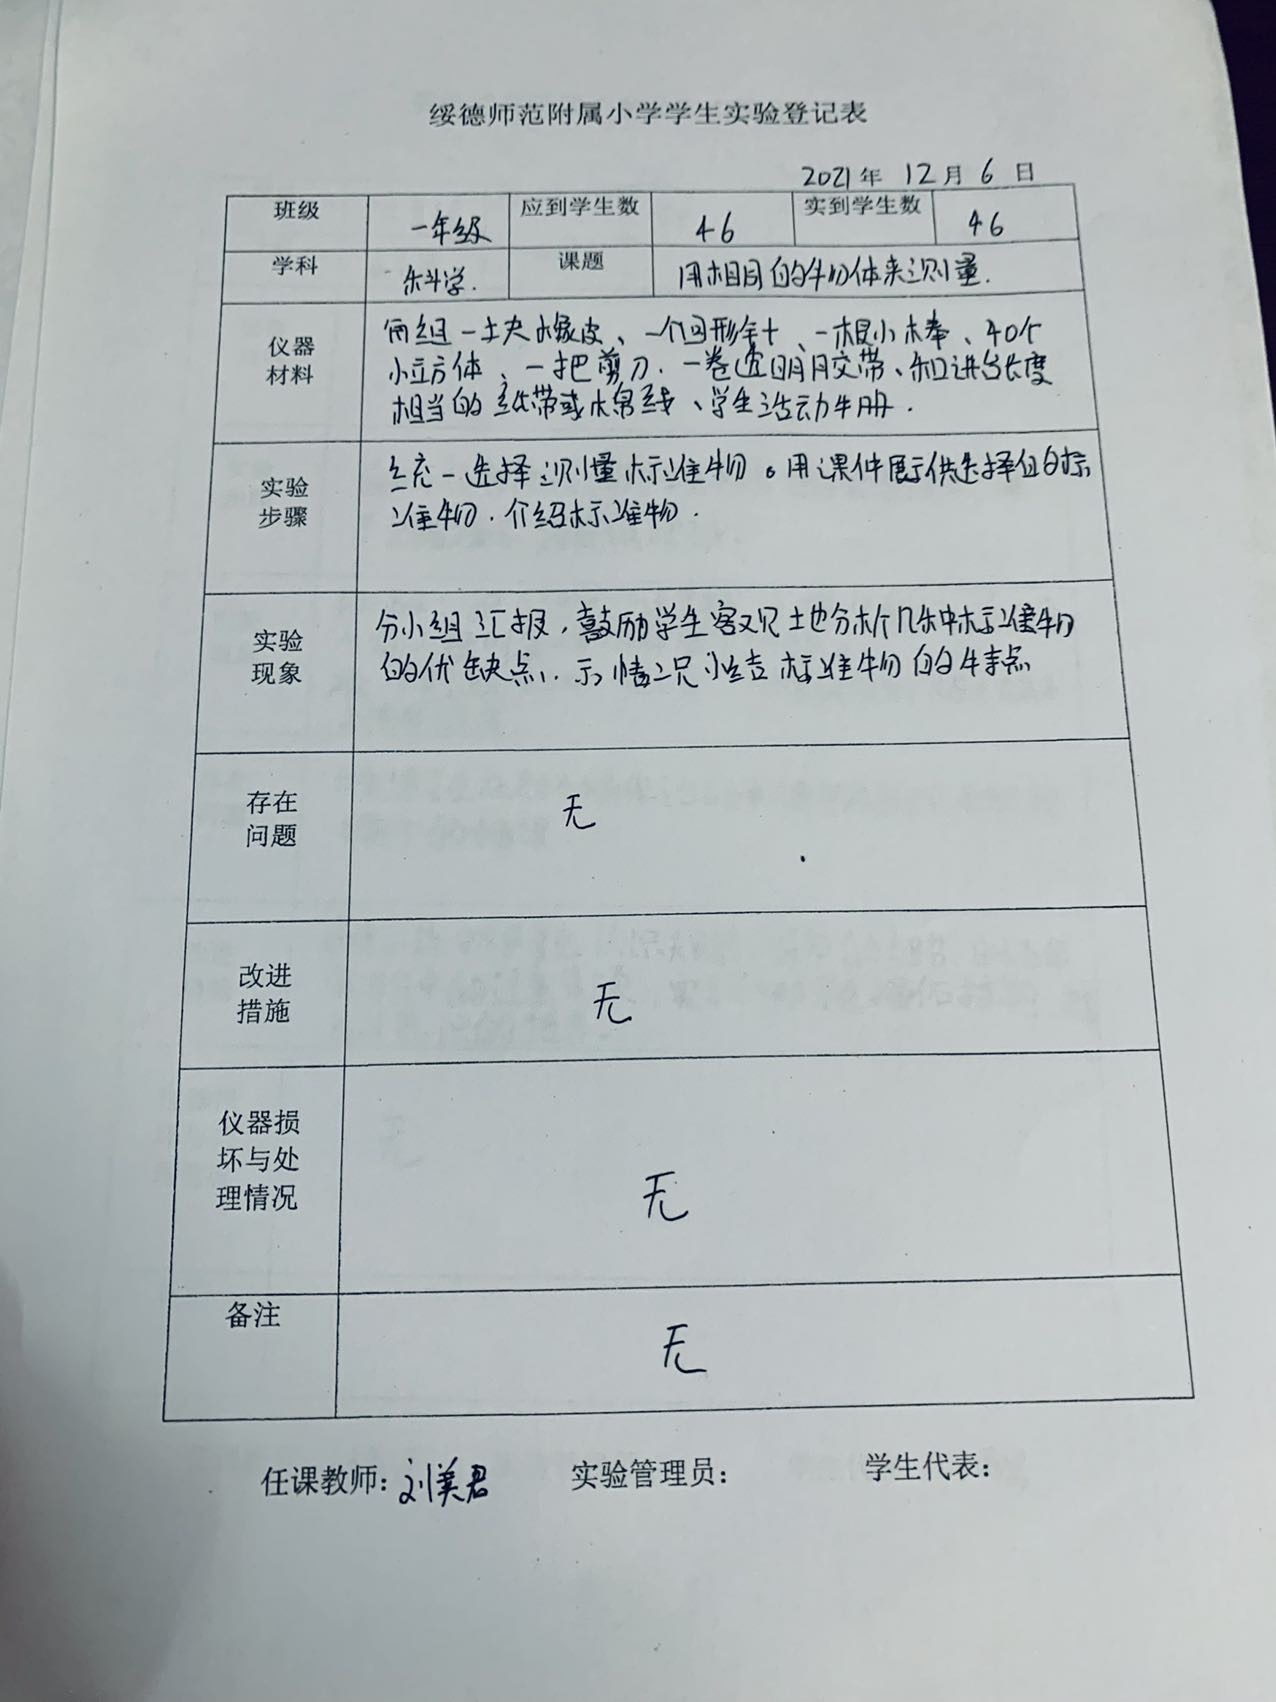 绥德师范附属小学学生实验登记表
2021年 12月 6日
班级 一年级 应到学生数 46 实到学生数 46
学科 科学. 课题 用相同的物体来测量.
仪器材料
两组一块橡皮、一个回形针、一根小木棒、40个
小立方体、一把剪刀.一卷透明胶带、和讲台长度
相当的纸带或棉线、学生活动手册.
实验步骤
统一选择测量标准物。用课件展示供选择的标
准物.介绍标准物.
实验现象
分小组汇报,鼓励学生客观地分析几种标准物
的优缺点,.示情况小结标准物的特点
存在问题
无
改进措施
无
仪器损坏与处理情况
无
备注
无
任课教师:刘美君 实验管理员: 学生代表: